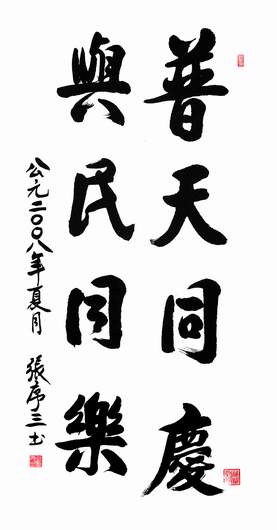 普天同慶
與民同樂
公元二〇〇八年夏月 張序三書